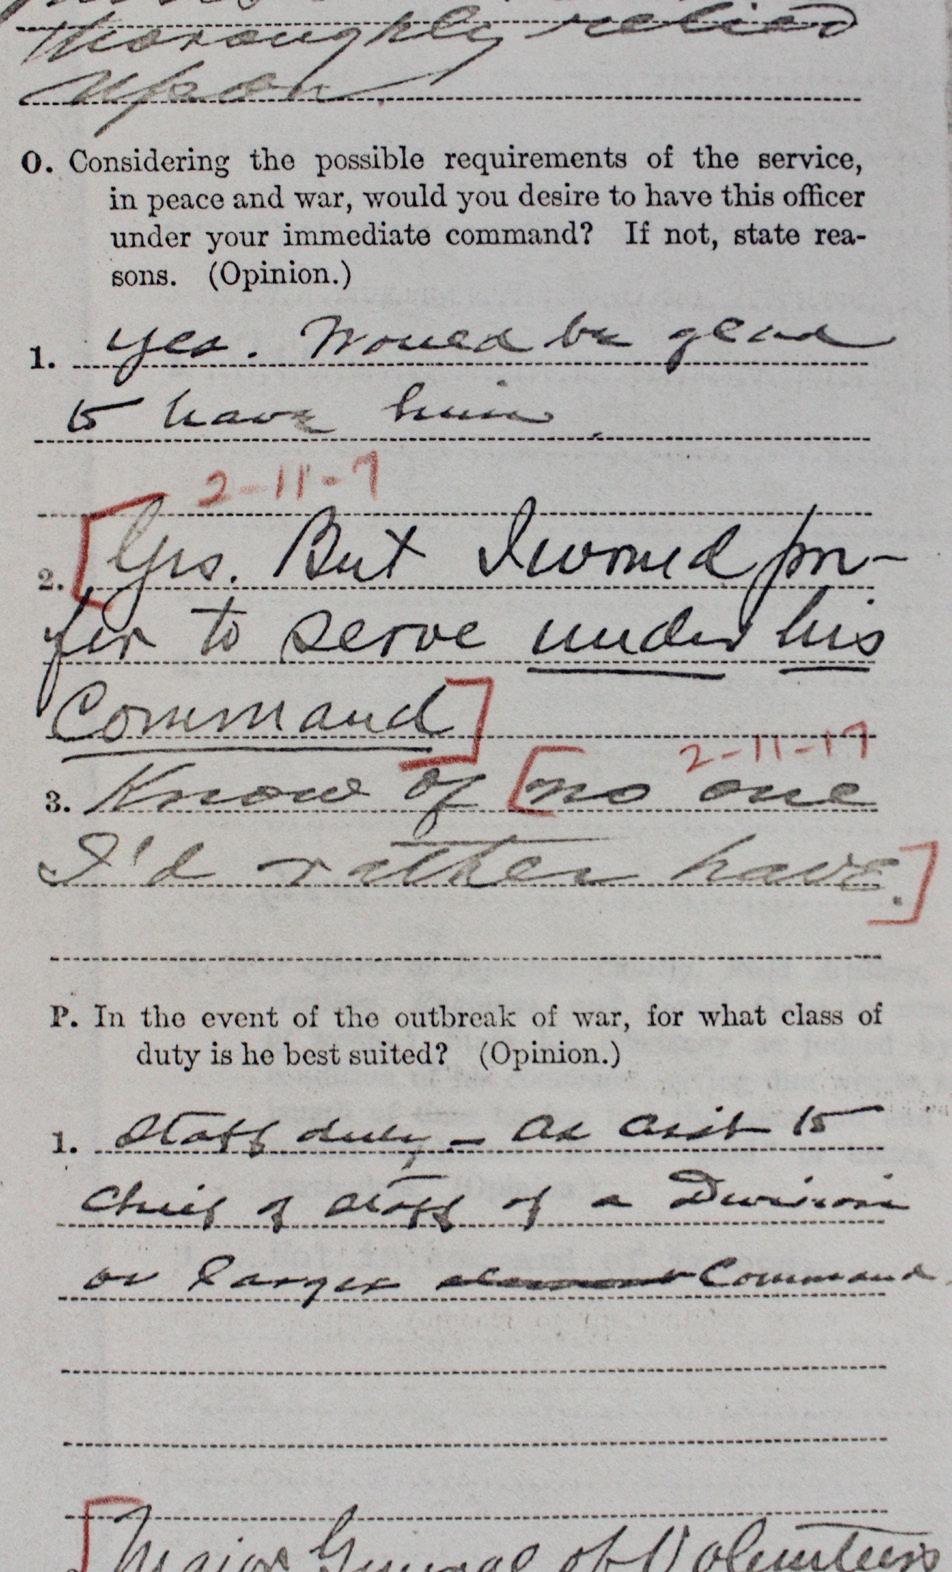 thoroughly relied
upon.
O. Considering the possible requirements of the service,
in peace and war, would you desire to have this officer
under your immediate command? If not, state rea-
sons. (Opinion.)
1. Yes. Would be glad
to have him.
2-11-7
2. [Yes. But I would pre-
fer to serve under his
Command]
2-11-17
3. Know of [no one
I'd rather have.]
P. In the event of the outbreak of war, for what class of
duty is he best suited? (Opinion.)
1. Staff duty – As Asst to
Chief of Staff of a Division
or larger Command
[Major General of Volunteers